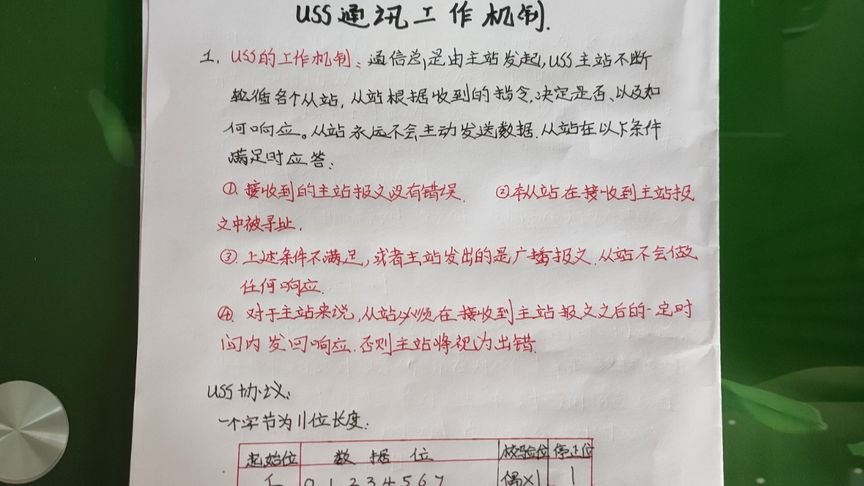 USS通讯工作机制.
1. USS的工作机制:通信总是由主站发起,USS主站不断
轮循各个从站,从站根据收到的指令,决定是否、以及如
何响应。从站永远不会主动发送数据.从站在以下条件
满足时应答:
①.接收到的主站报文没有错误. ②本从站在接收到主站报
文中被寻址.
③上述条件不满足,或者主站发出的是广播报文.从站不会做
任何响应.
④.对于主站来说,从站必须在接收到主站报文之后的一定时
间内发回响应.否则主站将视为出错.
USS协议:
一个字节为11位长度:
起始位 数据位 校验位 停止位
1 0 1 2 3 4 5 6 7 偶×1 1